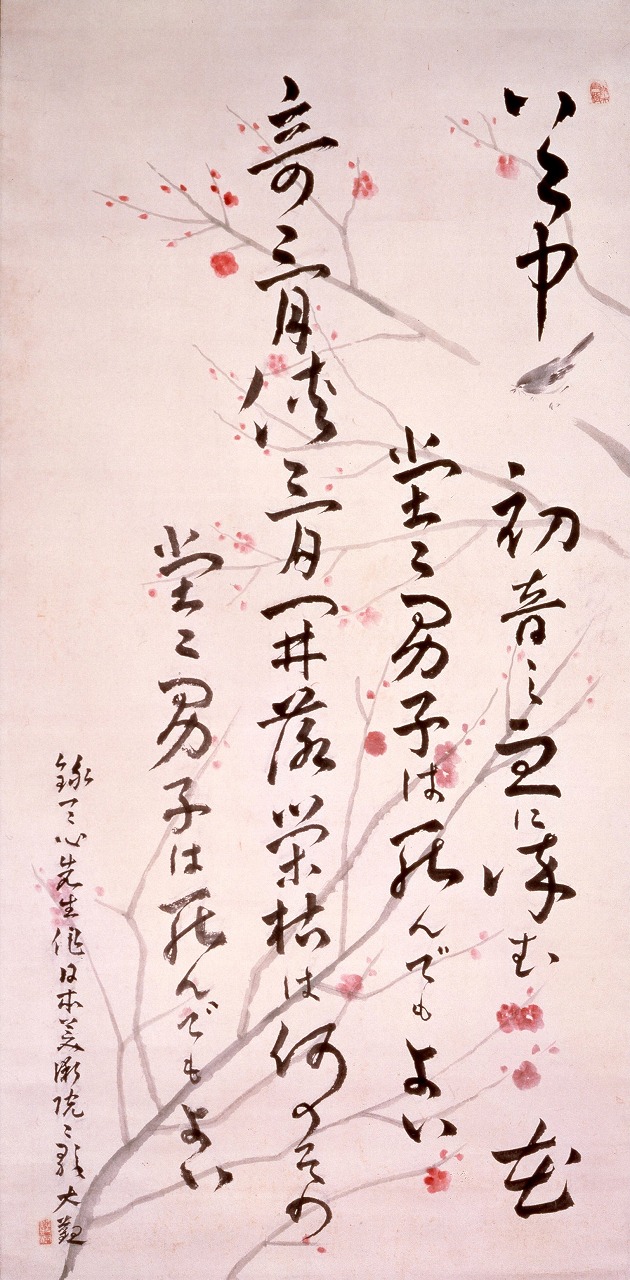 谷中
初音之血に染む
花
堂々男子は死んでもよい
奇骨侠骨開落栄枯は何のその
堂々男子は死んでもよい
録天心先生作日本美術院之歌 大観